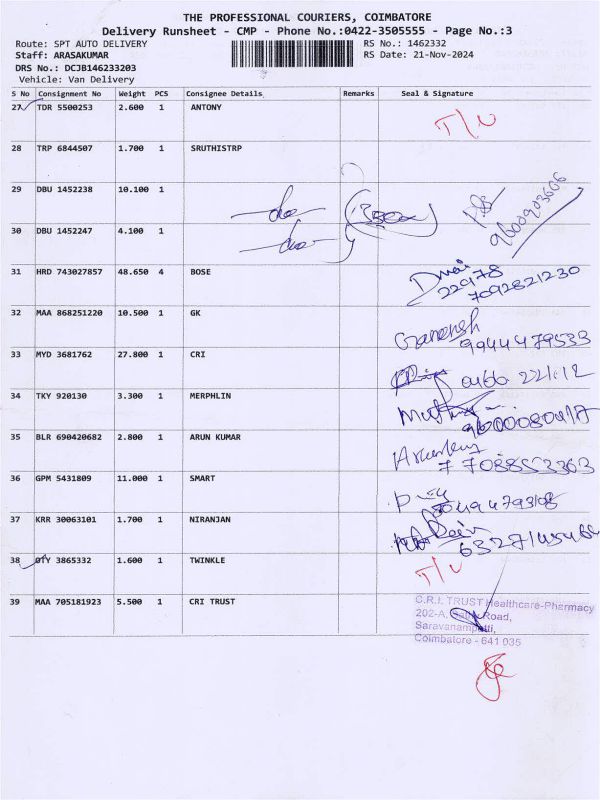 THE PROFESSIONAL COURIERS, COIMBATORE
Delivery Runsheet - CMP - Phone No.:0422-3505555 - Page No.:3
Route: SPT AUTO DELIVERY RS No.: 1462332
Staff: ARASAKUMAR RS Date: 21-Nov-2024
DRS No.: DCJB146233203
Vehicle: Van Delivery
S No Consignment No Weight PCS Consignee Details Remarks Seal & Signature
27 TDR 5500253 2.600 1 ANTONY
T/U
28 TRP 6844507 1.700 1 SRUTHISTRP
29 DBU 1452238 10.100 1
30 DBU 1452247 4.100 1
31 HRD 743027857 48.650 4 BOSE
22978
7092821230
32 MAA 868251220 10.500 1 GK
Ganesh
9944479533
33 MYD 3681762 27.800 1 CRI
34 TKY 920130 3.300 1 MERPHLIN
35 BLR 690420682 2.800 1 ARUN KUMAR
7708853363
36 GPM 5431809 11.000 1 SMART
37 KRR 30063101 1.700 1 NIRANJAN
38 OTY 3865332 1.600 1 TWINKLE
T/U
39 MAA 705181923 5.500 1 CRI TRUST
C.R.I. TRUST Healthcare-Pharmacy
202-A, Road,
Saravanampatti,
Coimbatore - 641 035